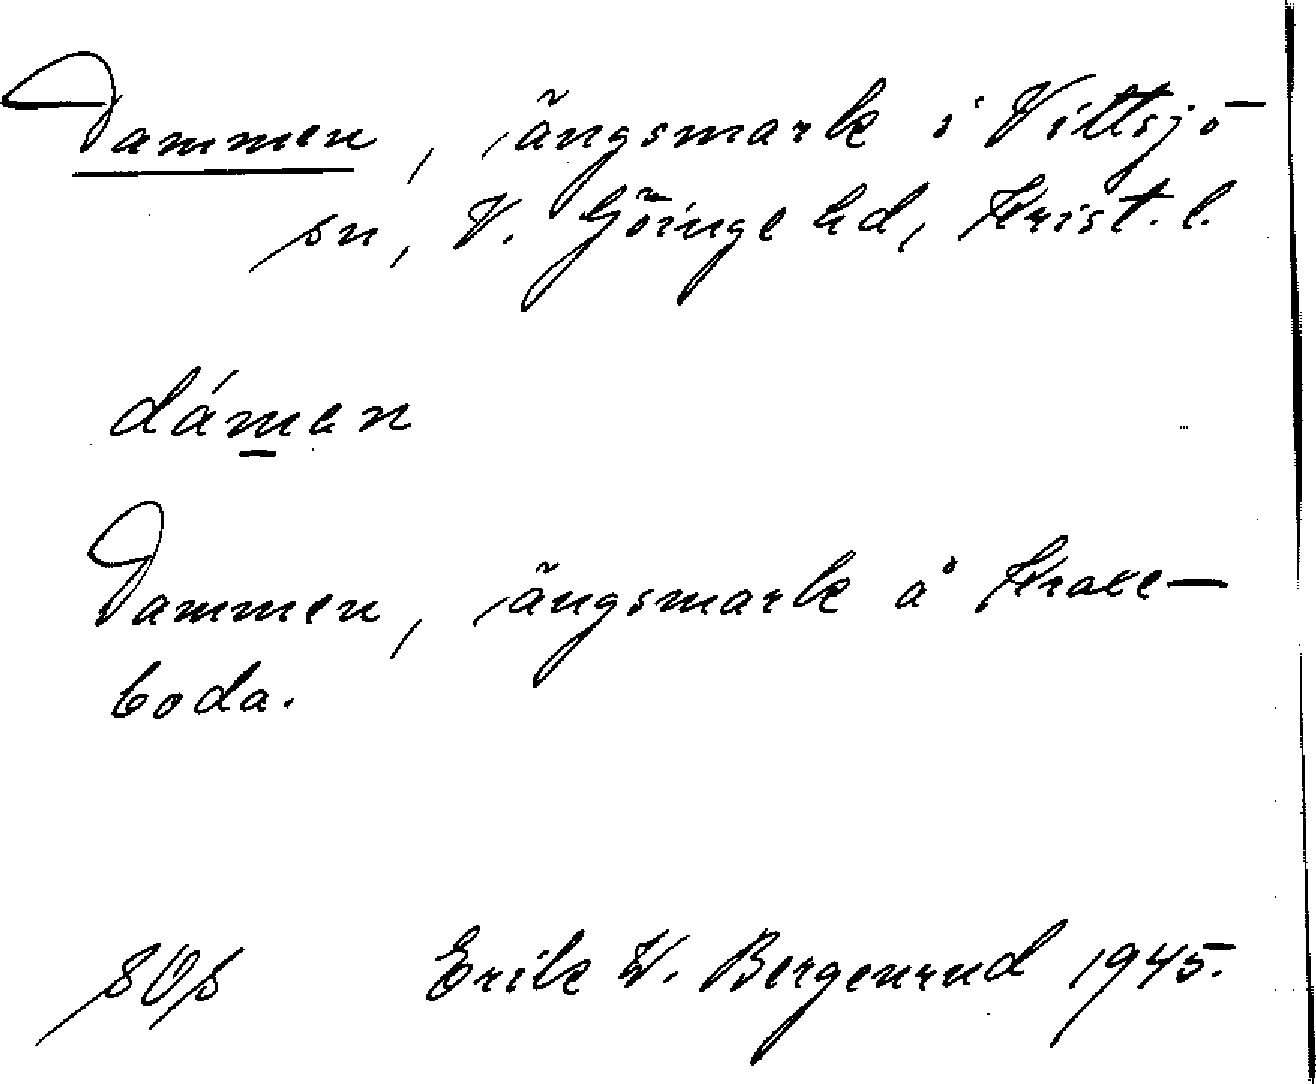 Dammen, ängsmark i Vittsjö
sn, V. Göinge hd, Krist. l.
dámen
Dammen, ängsmark å
boda.
Erik W. Bergenrud 1945.